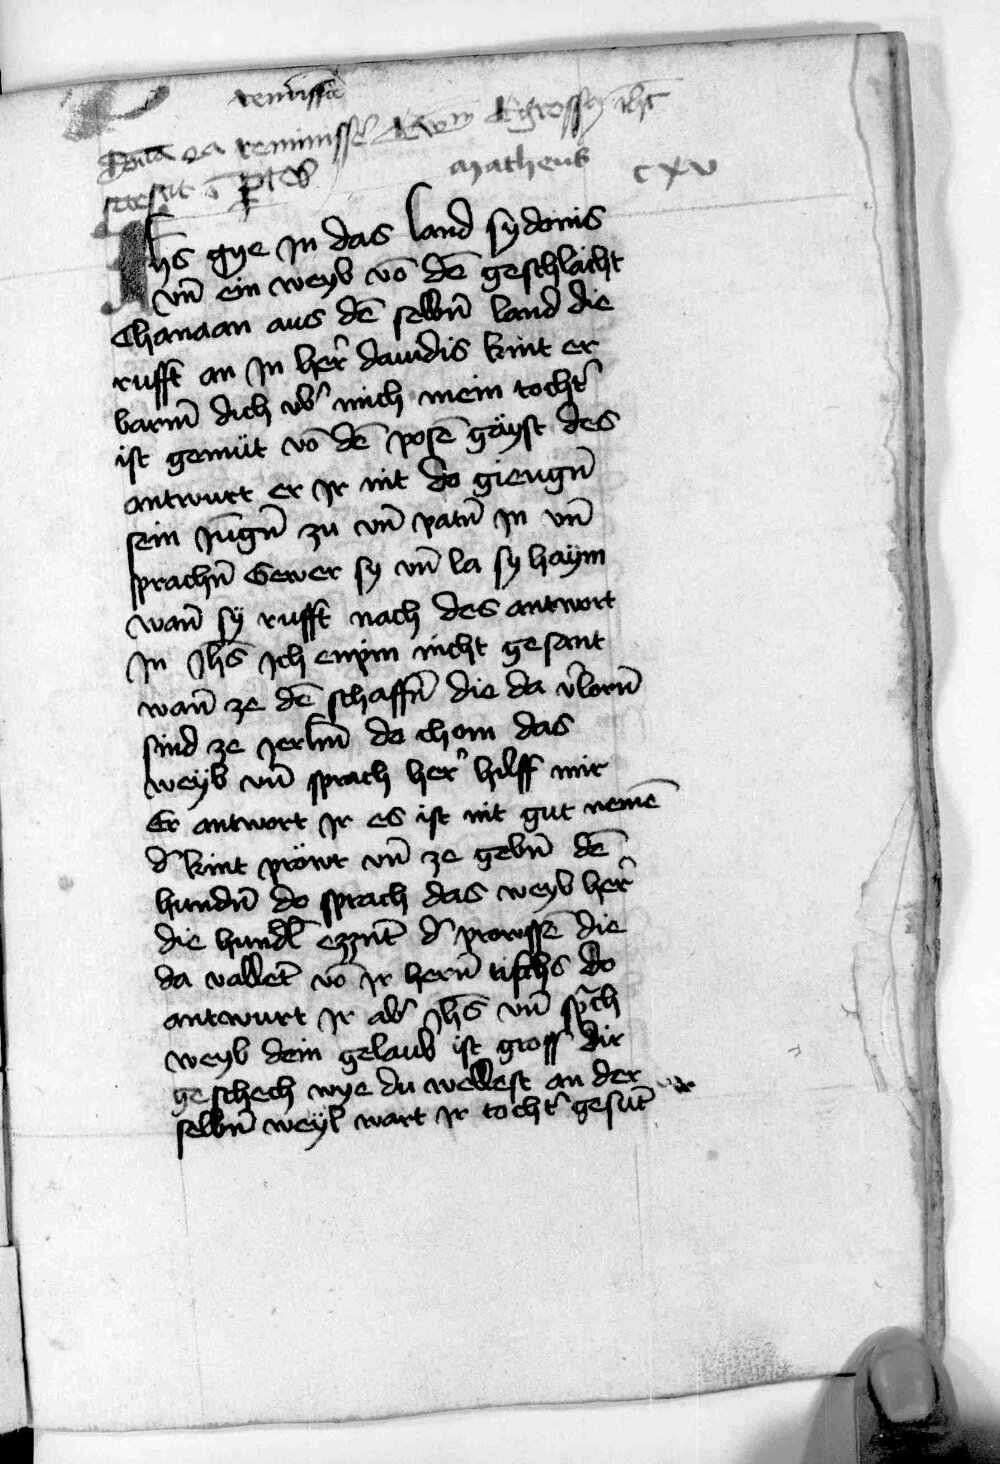 reminiscē
Domica reminisse Ewm Egressus ihc
Matheus cxv
Ihs gye in das land sydonis
vn̄ ein weyb vō dē geschlächt
Chanaan aus dē selbn̄ land die
rufft an in her̄ dauidis kint er
barm̄ dich vb̾ mich mein tocht̾
ist gemüt vō dē posē gäyst des
antwurt er ir nit do giengn̄
sein iūgn̄ zu vn̄ patn̄ in vn̄
sprachn̄ Gewer sy vn̄ la sy haÿm
wan̄ sÿ rufft nach des antwort
in Jhs̄ ich enpin nicht gesant
wan̄ ze dē schaffn̄ die da v̾lorn̄
sind ze ierlm̄ do chom das
weyb vn̄ sprach her̾ hilff mir
Er antwort ir es ist nit gut nemē
d̾ kint pröwt vn̄ ze gebn̄ dē
hundn̄ do sprach das weyb her̾
die hundl̄ ezznt̄ d̾ prowssē die
da vallet̄ vō ir hern̄ tischs do
antwurt ir ab̾ Jhs̄ vn̄ sp̄ch
weyb dein gelaub ist gross dir
geschech wye du wellest an der
selbn̄ weÿl wart ir tocht̾ gesūt